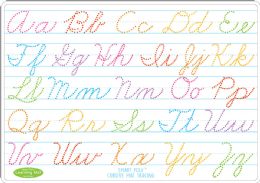 Aa Bb Cc Dd Ee
Ff Gg Hh Ii Jj Kk
Ll Mm Nn Oo Pp
Qq Rr Ss Tt Uu
Vv Ww Xx Yy Zz
Learning Mat
CURSIVE LINE TRACING